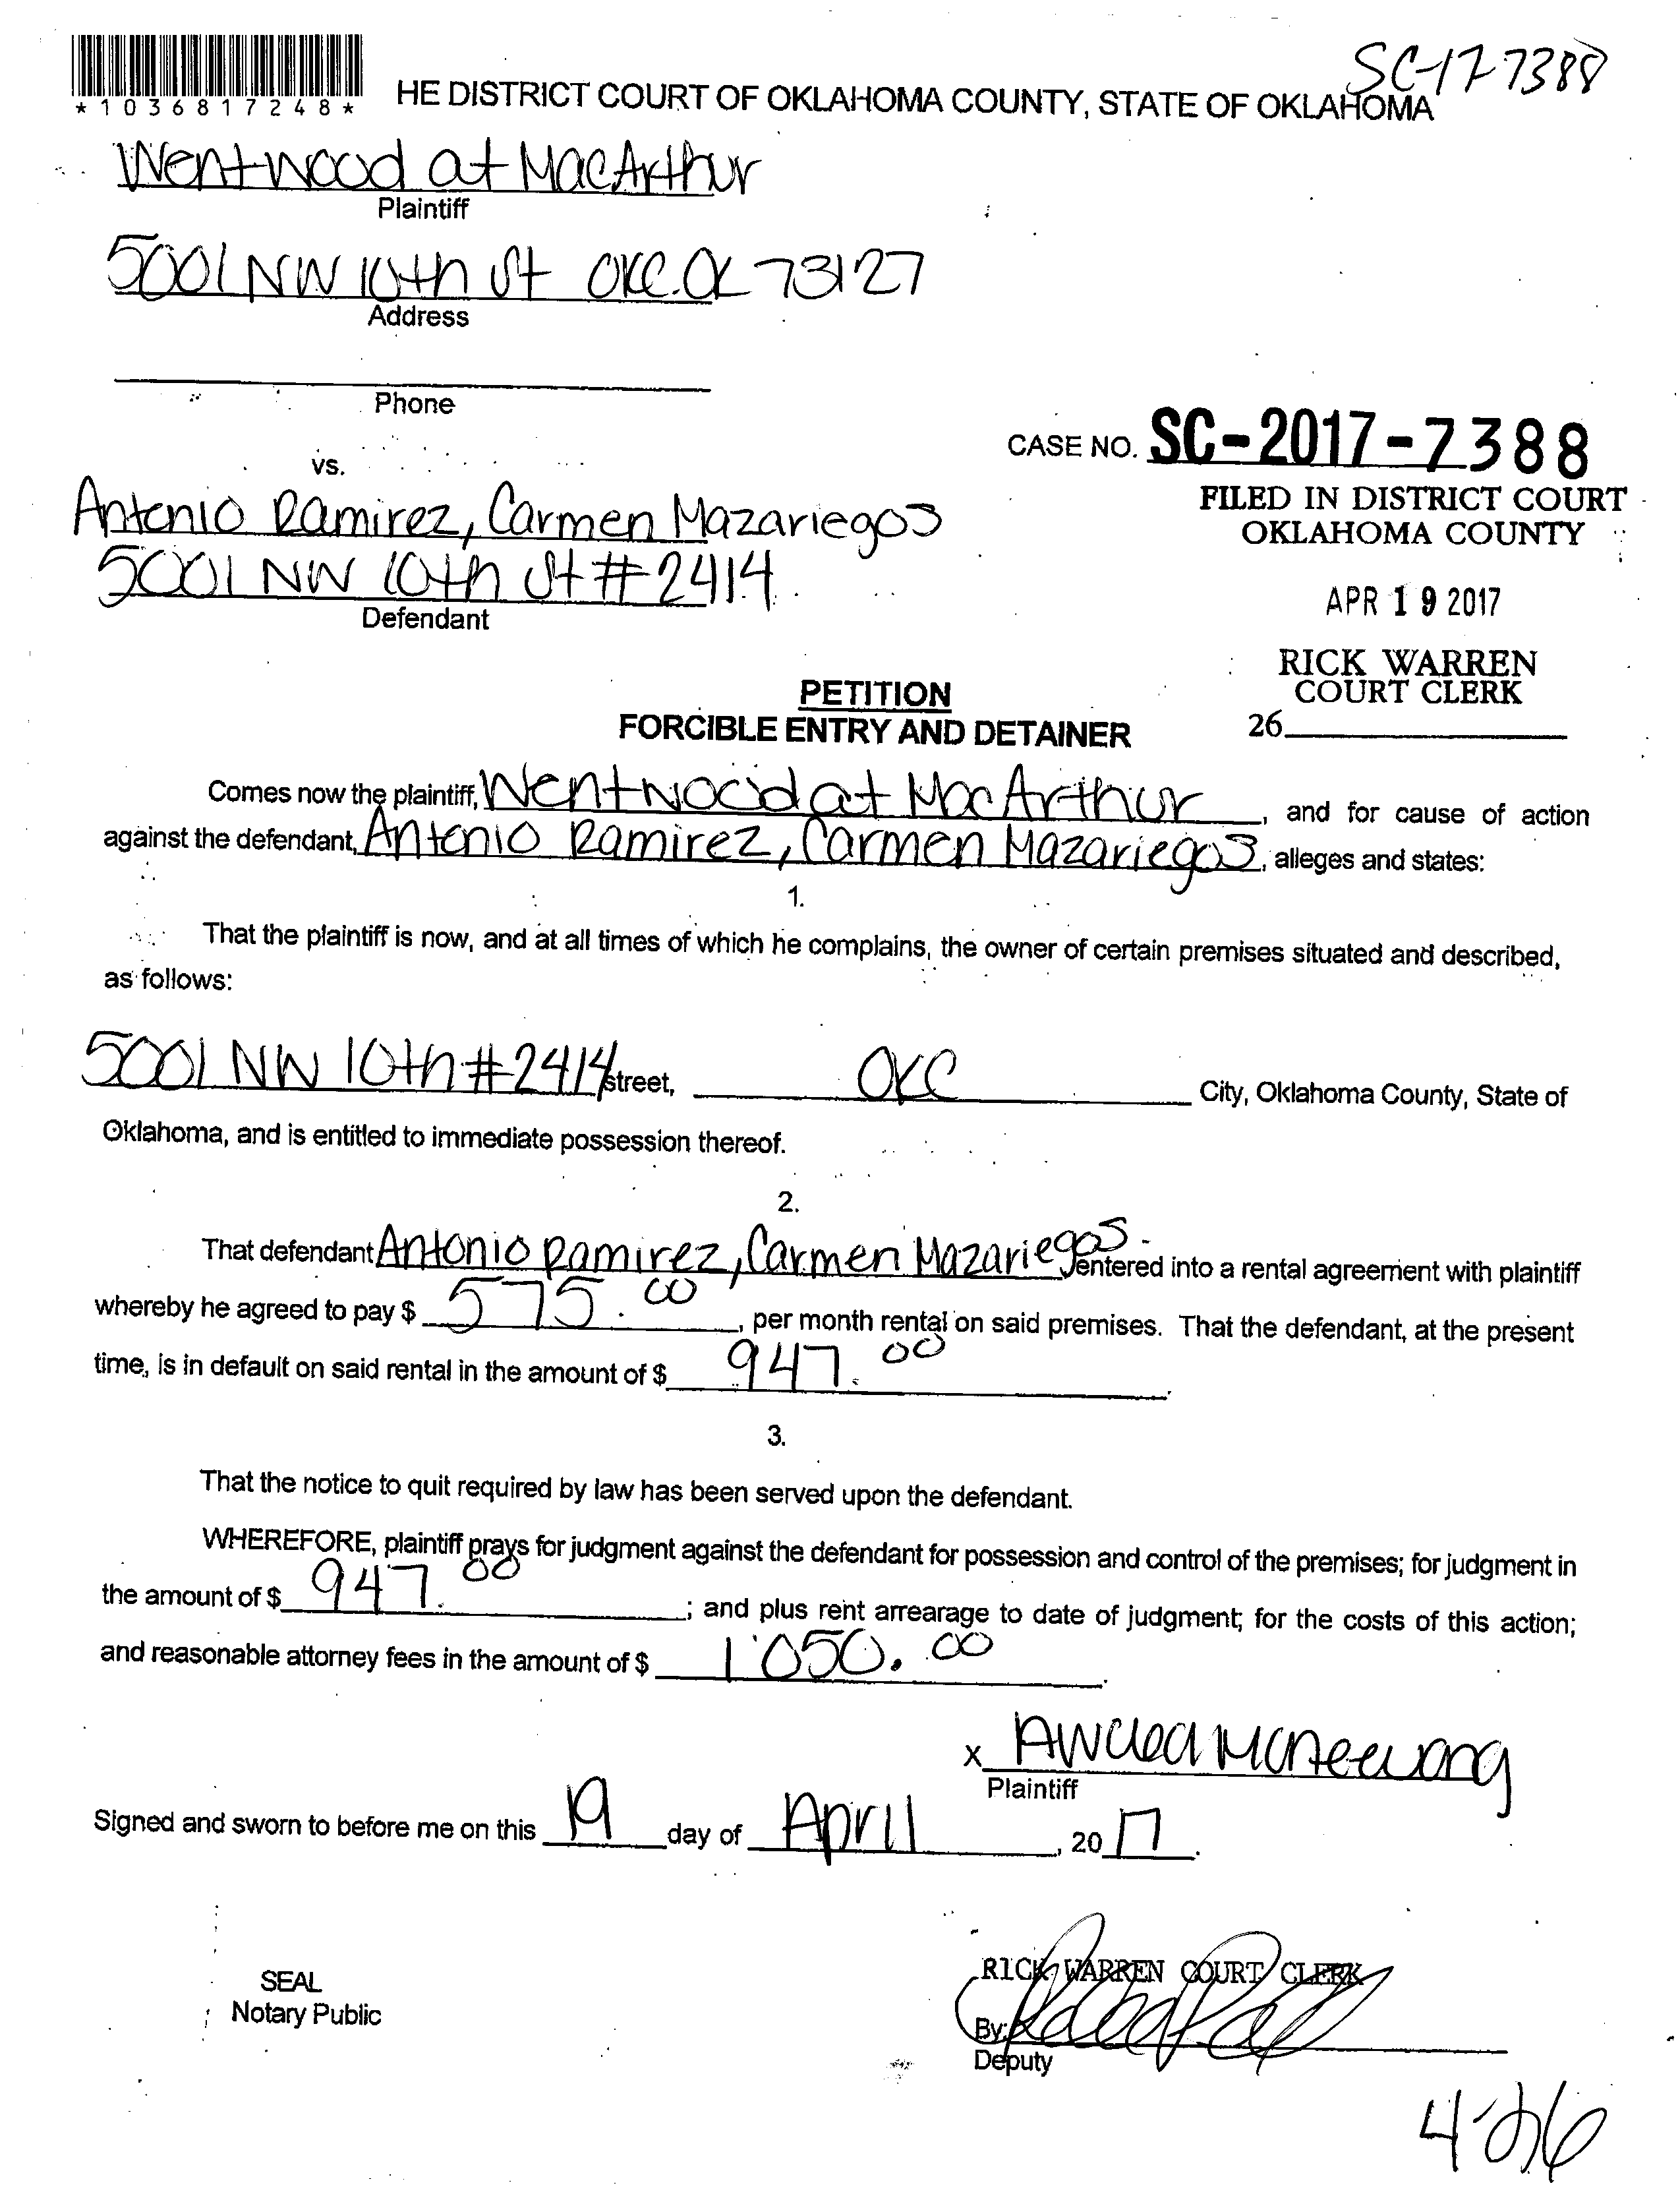 SC-17-7388
*1036817248*
HE DISTRICT COURT OF OKLAHOMA COUNTY, STATE OF OKLAHOMA
Wentwood at MacArthur
Plaintiff
5001 NW 10th St OKC. OK 73127
Address
Phone
CASE NO. SC-2017-7388
vs.
FILED IN DISTRICT COURT
OKLAHOMA COUNTY
Antonio Ramirez, Carmen Mazariegos
5001 NW 10th St #2414
Defendant
APR 19 2017
RICK WARREN
COURT CLERK
26
PETITION
FORCIBLE ENTRY AND DETAINER
Comes now the plaintiff, Wentwood at MacArthur, and for cause of action
against the defendant, Antonio Ramirez, Carmen Mazariegos, alleges and states:
1.
That the plaintiff is now, and at all times of which he complains, the owner of certain premises situated and described,
as follows:
5001 NW 10th #2414 street, OKC City, Oklahoma County, State of
Oklahoma, and is entitled to immediate possession thereof.
2.
That defendant Antonio Ramirez, Carmen Mazariegos entered into a rental agreement with plaintiff
whereby he agreed to pay $ 575.00, per month rental on said premises. That the defendant, at the present
time, is in default on said rental in the amount of $ 947.00.
3.
That the notice to quit required by law has been served upon the defendant.
WHEREFORE, plaintiff prays for judgment against the defendant for possession and control of the premises; for judgment in
the amount of $ 947.00; and plus rent arrearage to date of judgment; for the costs of this action;
and reasonable attorney fees in the amount of $ 1050.00.
x
Plaintiff
Signed and sworn to before me on this 19 day of April, 20 17.
RICK WARREN COURT CLERK
SEAL
Notary Public
By:
Deputy
4-26